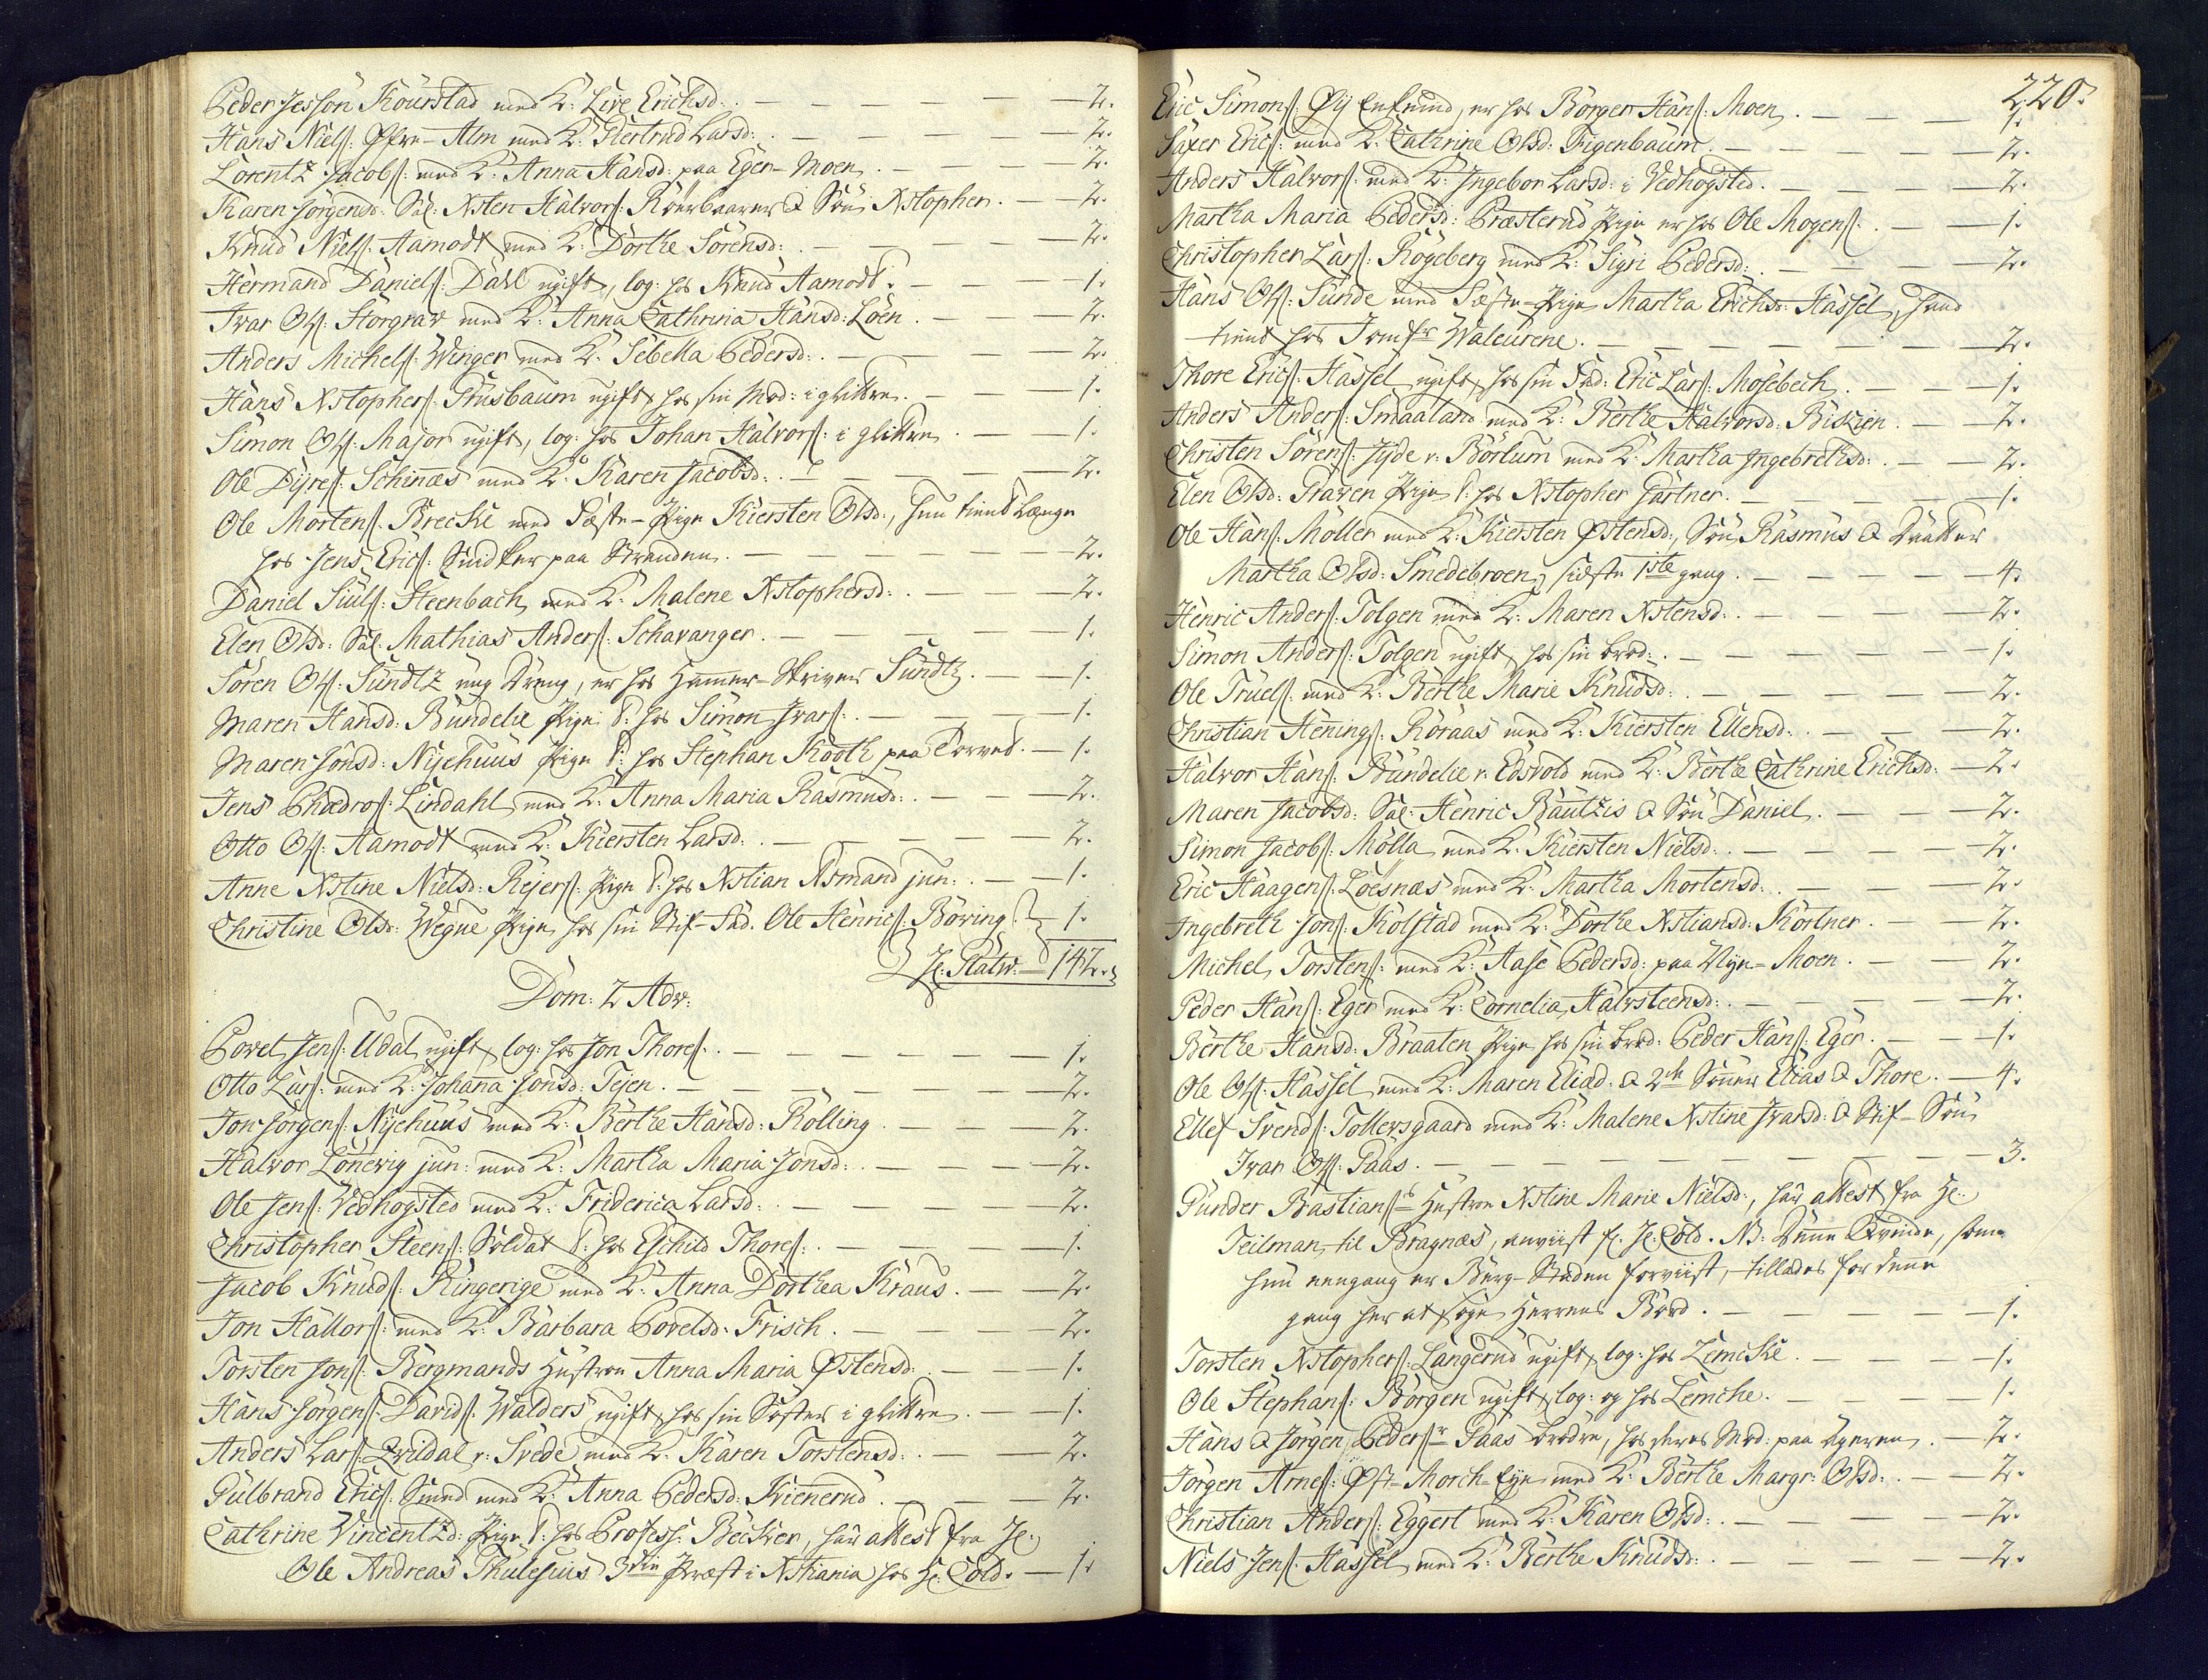 Peder Jesson Kourstad med K: Live Erichsd: . — 2.
Hans Niels: Øfre-Alm med K: Giertrud Larsd: . — 2.
Lorentz Jacobs: med K: Anna Hansd: paa Eger-Moen . — 2.
Karen Jörgensd: Sal: Xsten Halvors: & Sön Xstopher . — 2.
Knud Niels: Aamodt med K: Dorthe Sörensd: . — 2.
Hermand Daniels: Dahl ugift, log: hos Knud Aamodt . — 1.
Ivar Ols: Storgrav med K: Anna Cathrina Hansd: Löen . — 2.
Anders Michels: Winger med K: Sebella Pedersd: . — 2.
Hans Xstophers: Prusbaum ugift, hos sin Mod: i glitten . — 1.
Simon Ols: Major ugift, log: hos Johan Halvors: i glitten . — 1.
Ole Dyres: Schinæs med K: Karen Jacobsd: . — 2.
Ole Mortens: Brecke med Fæste-Pige Kiersten Olsd:, hun tient Længe
hos Jens Erics: Snidker paa Stranden . — 2.
Daniel Siuls: Steenbach med K: Malene Xstophersd: . — 2.
Elen Olsd: Sal: Mathias Anders: Schavanger . — 1.
Sören Ols: Sundtz ung Dreng, er hos Hammer-Skriver Sundtz . — 1.
Maren Hansd: Bundelie Pige t: hos Simon Ivars: . — 1.
Maren Jonsd: Nyehuus Pige t: hos Stephan Kooth paa Torved . — 1.
Jens Phædros: Lindahl med K: Anna Maria Rasmusd: . — 2.
Otto Ols: Aamodt med K: Kiersten Larsd: . — 2.
Anne Xstine Nielsd: Reyers: Pige t: hos Xstian Asmand jun: . — 1.
Christine Olsd: Wegne Pige hos sin Stif-Fad: Ole Henrics: Böring . 1.
H: Statw: — 147.
Dom: 2 Adv:
Povel Jens: Udal ugift, log: hos Jon Thores: . — 1.
Otto Lars: med K: Johana Jonsd: Tejen . — 2.
Jon Jörgens: Nyehuus med K: Berthe Hansd: Rolling . — 2.
Halvor Lönevig jun: med K: Martha Maria Jonsd: . — 2.
Ole Jens: Vedhogsted med K: Friderica Larsd: . — 2.
Christopher Steens: Soldat t: hos Eschild Thores: . — 1.
Jacob Knuds: Ringerige med K: Anna Dorthea Kraus . — 2.
Jon Hallors: med K: Barbara Povelsd: Frisch . — 2.
Torsten Jons: Bergmands Hustrue Anna Maria Østensd: . — 1.
Hans Jörgens: Davids: Walders ugift, hos sin Söster i glitten . — 1.
Anders Lars: Qvildal v: Svede med K: Karen Torstensd: . — 2.
Gulbrand Erics: Smed med K: Anna Pedersd: Kiennerud . — 2.
Cathrine Vincentzd: Pige t: hos Profess: Becker, har attest fra H:
Ole Andreas Thulesius 3die Præst i Xstiania hos H: Cold . — 1.
220.
Eric Simons: Øy Enkemand, er hos Borger Hans: Moen . — 1.
Saxer Erics: med K: Cathrine Olsd: Figenbaum . — 2.
Anders Halvors: med K: Ingebor Larsd: i Vedhogsted . — 2.
Martha Maria Pedersd: Præsterud Pige er hos Ole Mogens: . — 1.
Christopher Lars: Rögeberg med K: Sigri Pedersd: . — 2.
Hans Ols: Sunde med Fæste-Pige Martha Erichsd: Hassel, hand
tient hos Jomfr Waleurene . — 2.
Thore Erics: Hassel ugift, hos sin Fad: Eric Lars: Mosebech . — 1.
Anders Anders: Smaaland med K: Berthe Halvorsd: Biskien . — 2.
Christen Sörens: Jyde v: Börlum med K: Martha Ingebrethsd: . — 2.
Elen Olsd: Graven Pige t: hos Xstopher Gartner . — 1.
Ole Hans: Möller med K: Kiersten Østensd:, Sön Rasmus & Datter
Martha Olsd: Smedebroen, sidste 1ste gang . — 4.
Henric Anders: Tolgen med K: Maren Xstensd: . — 2.
Simon Anders: Tolgen ugift, hos sin brod: . — 1.
Ole Truels: med K: Berthe Marie Knudsd: . — 2.
Christian Hennings: Röraas med K: Kiersten Ellensd: . — 2.
Halvor Hans: Bundelie v: Edsvold med K: Berthe Cathrine Erichsd: — 2.
Maren Jacobsd: Sal: Henric Bautzis & Sön Daniel . — 2.
Simon Jacobs: Mölla med K: Kiersten Nielsd: . — 2.
Eric Haagens: Loesnæs med K: Martha Mortensd: . — 2.
Ingebreth Jons: Kolstad med K: Dorthe Xstiansd: Körtner . — 2.
Michel Torstens: med K: Aase Pedersd: paa Nye-Moen . — 2.
Peder Hans: Eger med K: Cornelia Halvsteensd: . — 2.
Berthe Hansd: Braaten Pige hos sin brod: Peder Hans: Eger . — 1.
Ole Ols: Hassel med K: Maren Eliæd: & 2de Sönner Elias & Thore . — 4.
Ellef Svends: Tollersgaard med K: Malene Xstine Ivarsd: & Stif-Sön
Ivar Ols: Paas . — 3.
Gunder Bastians: Hustrue Xstine Marie Nielsd:, har attest fra H:
Teilman til Bragnæs, anviist H: Cold. NB: Denne Qvinde, som
hun eengang er Berg-Staden forviist, tillades for denne
gang her at söge Herrens Bord . — 1.
Torsten Xstophers: Langerud ugift, log: hos Lemcke . — 1.
Ole Stephans: Borgen ugift, log: og hos Lemche . — 1.
Hans & Jörgen Peders: Paas Brödre, hos deres Mod: paa Ageren . — 2.
Jörgen Arnes: Øst-Morch-Eje med K: Berthe Margr: Olsd: . — 2.
Christian Anders: Eggert med K: Karen Olsd: . — 2.
Niels Jens: Hassel med K: Berthe Knudsd: . — 2.